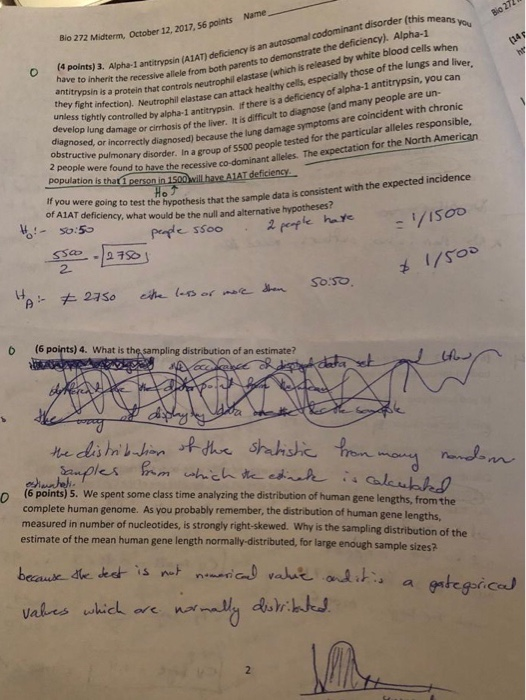 Bio 272 Midterm, October 12, 2017, 56 points Name
Bio 272
(4 points) 3. Alpha-1 antitrypsin (A1AT) deficiency is an autosomal codominant disorder (this means you
have to inherit the recessive allele from both parents to demonstrate the deficiency). Alpha-1
antitrypsin is a protein that controls neutrophil elastase (which is released by white blood cells when
they fight infection). Neutrophil elastase can attack healthy cells, especially those of the lungs and liver,
unless tightly controlled by alpha-1 antitrypsin. If there is a deficiency of alpha-1 antitrypsin, you can
develop lung damage or cirrhosis of the liver. It is difficult to diagnose (and many people are un-
diagnosed, or incorrectly diagnosed) because the lung damage symptoms are coincident with chronic
obstructive pulmonary disorder. In a group of 5500 people tested for the particular alleles responsible,
2 people were found to have the recessive co-dominant alleles. The expectation for the North American
population is that 1 person in 1500 will have A1AT deficiency.
Ho ↑
If you were going to test the hypothesis that the sample data is consistent with the expected incidence
of A1AT deficiency, what would be the null and alternative hypotheses?
Ho:- 50:50 people 5500 2 people have = 1/1500
5500/2 = 2750
≠ 1/500
HA:- ≠ 2750 either less or more then 50:50.
(6 points) 4. What is the sampling distribution of an estimate?
the distribution of the statistic from many random
samples from which the estimate is calculated
(6 points) 5. We spent some class time analyzing the distribution of human gene lengths, from the
complete human genome. As you probably remember, the distribution of human gene lengths,
measured in number of nucleotides, is strongly right-skewed. Why is the sampling distribution of the
estimate of the mean human gene length normally-distributed, for large enough sample sizes?
because the test is not numerical value and it is a gategorical
values which are normally distributed.
2